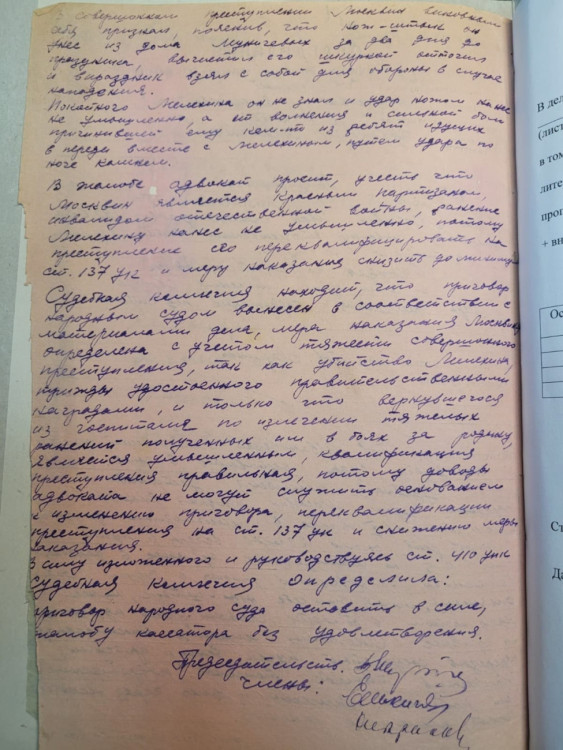 В совершенном преступлении Москвин виновным
себя признал, пояснив, что нож-штык он
унес из дома за два дня до
праздника, вычистил его шкуркой наточил
и в праздник взял с собой для обороны в случае
нападения.
Мелехина он не знал и удар ножом нанес
не умышленно, а от волнения и сильной боли
причинившей ему кем-то из ребят идущих
в переди вместе с Мелехиным, путем удара по
ноге камнем.
В жалобе адвокат просит, учесть что
Москвин является Красным партизаном,
инвалидом отечественной войны, ранение
Мелехину нанес не умышленно, потому
преступление его переквалифицировать на
ст. 137 ук и меру наказания снизить до минимума
Судебная коллегия находит, что приговор
народным судом вынесен в соответствии с
материалами дела, мера наказания Москвину
определена с учетом тяжести совершенного
преступления, так как убийство Мелехина,
трижды удостоенного правительственными
наградами, и только что вернувшегося
из госпиталя по излечении тяжелых
ранений полученных им в боях за родину,
является умышленным, квалификация
преступления правильная, потому доводы
адвоката не могут служить основанием
к изменению приговора, переквалификации
преступления на ст. 137 ук и снижению меры
наказания.
В силу изложенного и руководствуясь ст. 410 упк
судебная коллегия определила:
приговор народного суда оставить в силе,
жалобу кассатора без удовлетворения.
Председательств.
члены:
В дел
(лист
в том
лите
прог
+ вн
Ос
Ст
Да